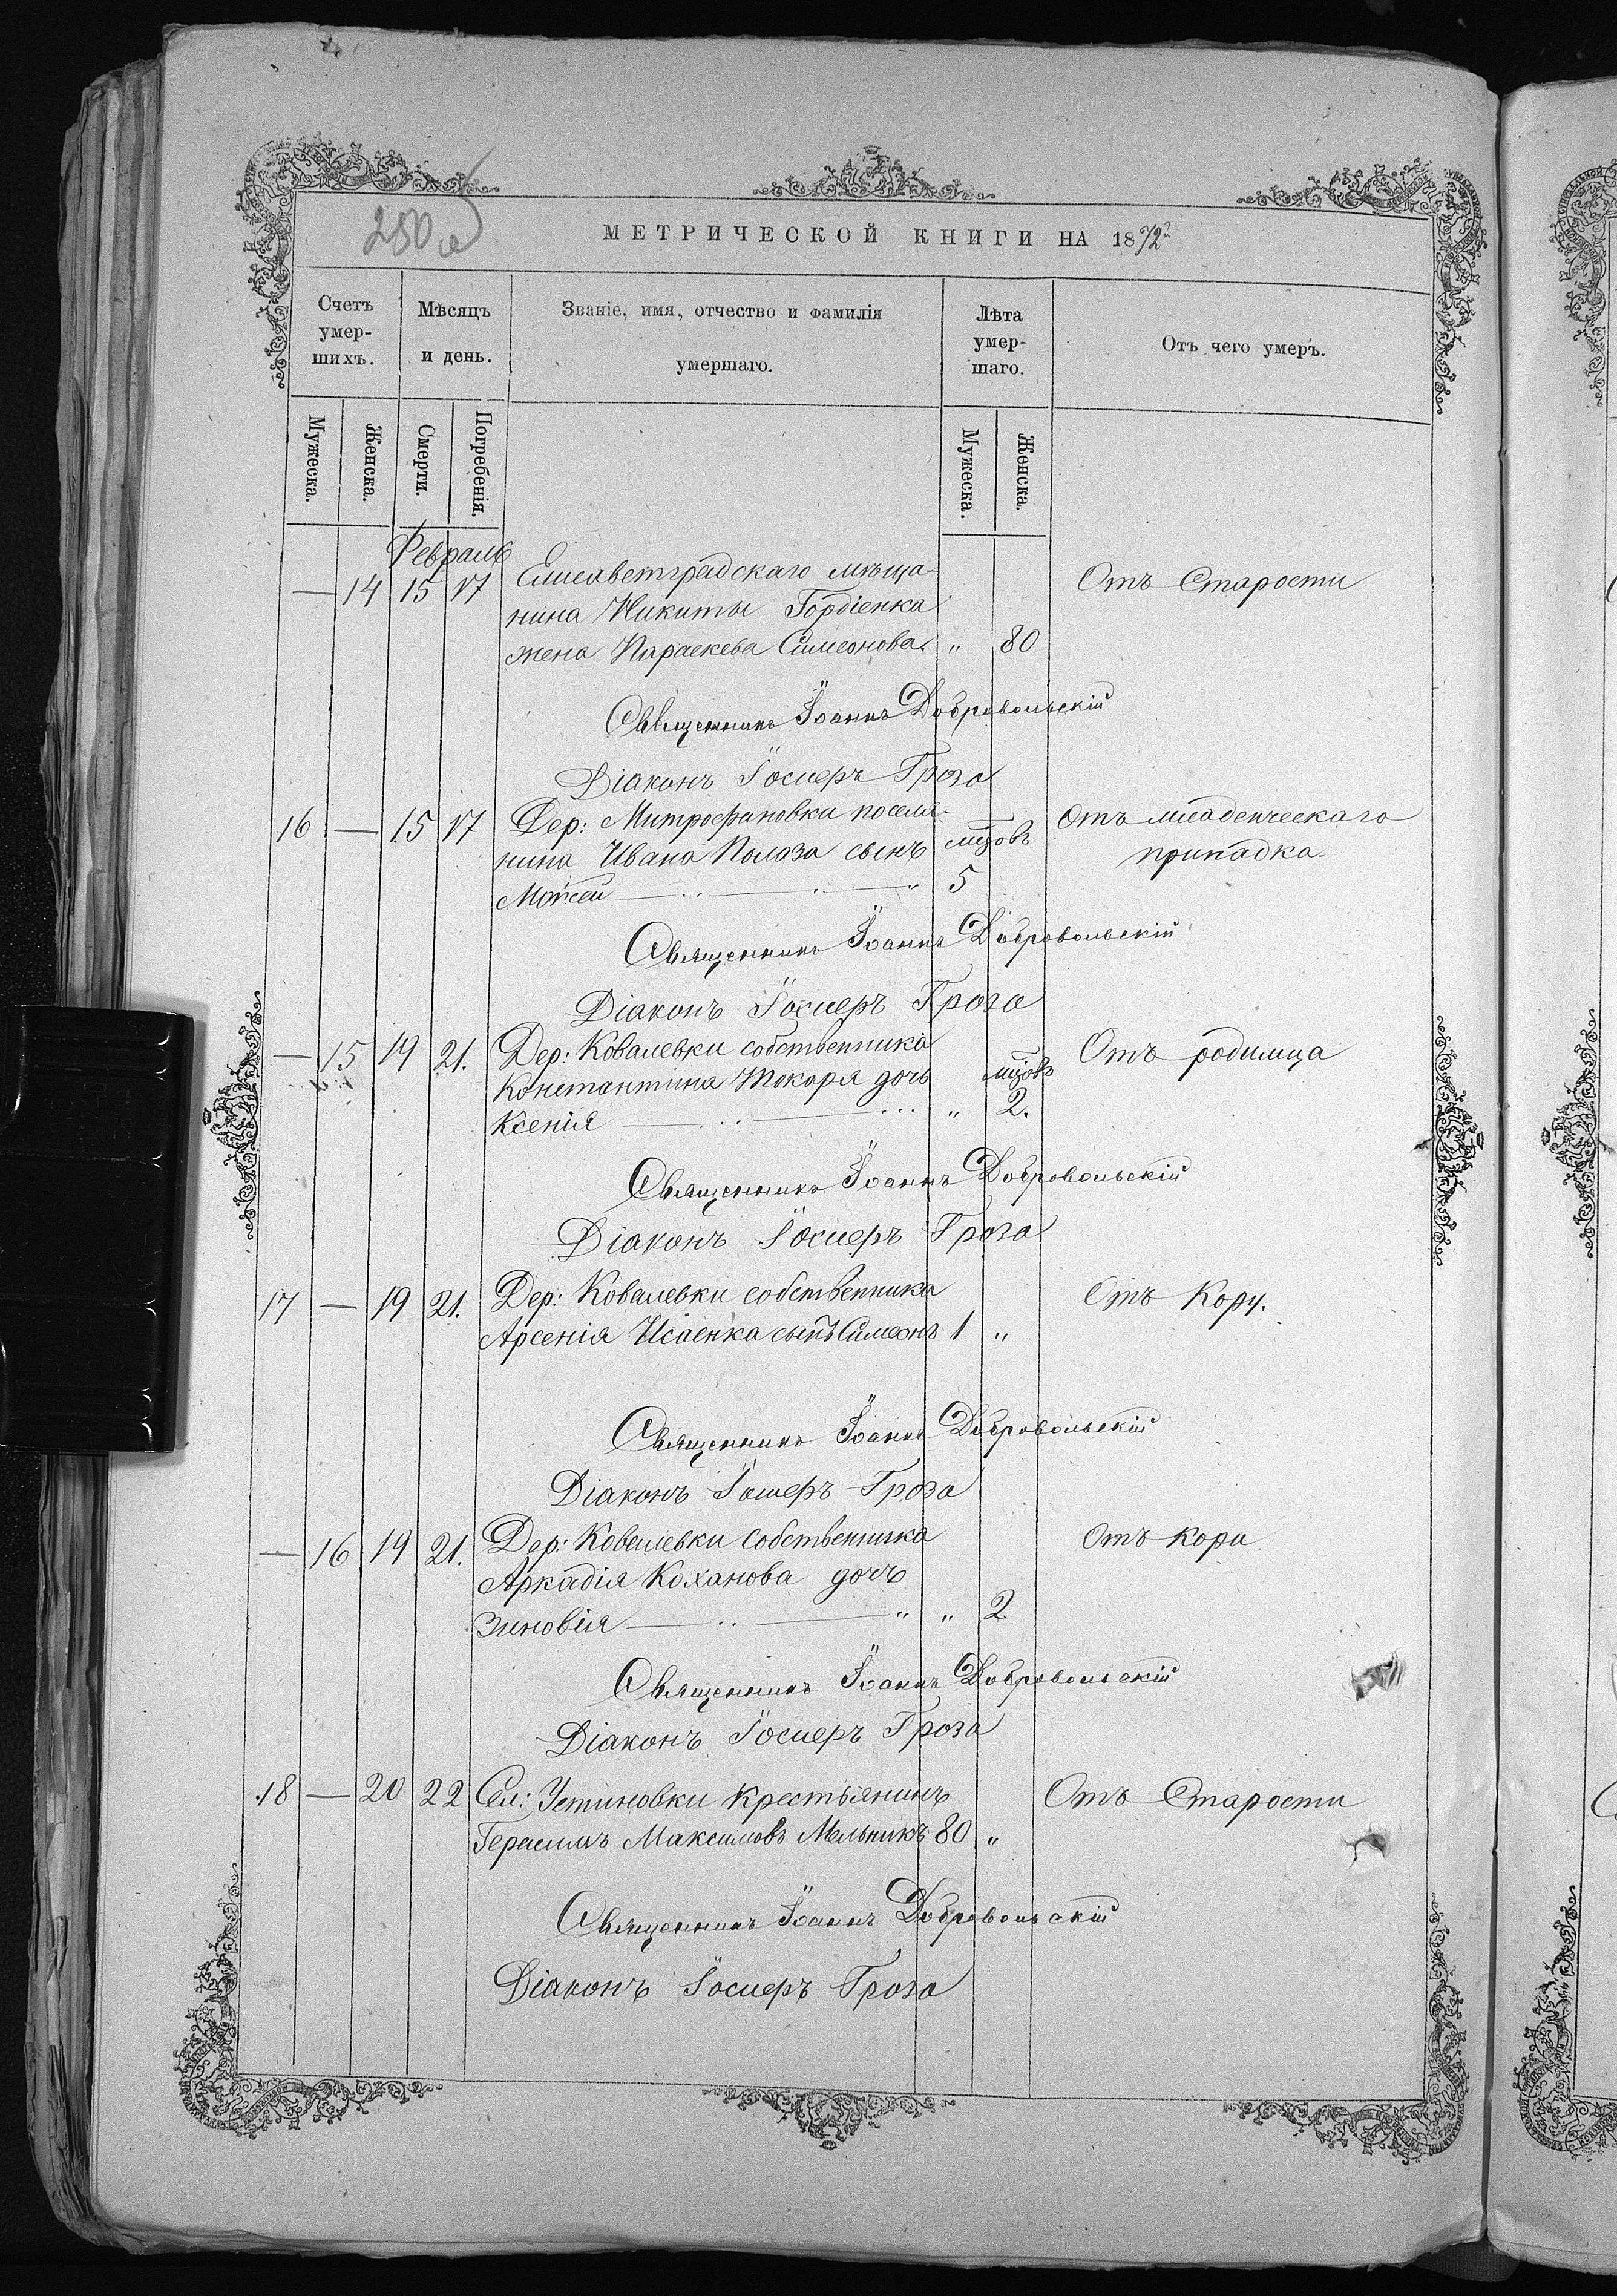 250 об
МЕТРИЧЕСКОЙ КНИГИ НА 1872
Счетъ умер-шихъ. Мѣсяцъ и день. Званіе, имя, отчество и фамилія умершаго. Лѣта умер-шаго. Отъ чего умеръ.
Мужеска. Женска. Смерти. Погребенія. Мужеска. Женска.
Февраль
— 14 15 17 Елисаветградскаго мѣща- Отъ Старости
нина Никиты Гордіенка
жена Параскева Симеонова. " 80
Священникъ Іоаннъ Добровольскій
Діаконъ Гроза
16 — 15 17 Дер: Митрофановки поселя- Отъ младенческаго
нина Ивана Полоза сынъ мцовъ припадка.
Моѵсей — " 5
Священникъ Іоаннъ Добровольскій
Діаконъ Гроза
— 15 19 21. Дер: Ковалевки собственника Отъ родимца
Константина Токоря дочь мцовъ
Ксенія — " 2.
Священникъ Іоаннъ Добровольскій
Діаконъ Гроза
17 — 19 21. Дер: Ковалевки собственника Отъ Кору.
Арсенія Исаенка сынъ Симеонъ 1 "
Священникъ Іоаннъ Добровольскій
Діаконъ Гроза
— 16 19 21. Дер: Ковалевки собственника Отъ кори
Аркадія Коханова дочь
Зиновія — " " 2.
Священникъ Іоаннъ Добровольскій
Діаконъ Гроза
18 — 20 22 Сел: Устиновки крестьянинъ Отъ Старости
Герасимъ Максимовъ Мельникъ 80 "
Священникъ Іоаннъ Добровольскій
Діаконъ Гроза